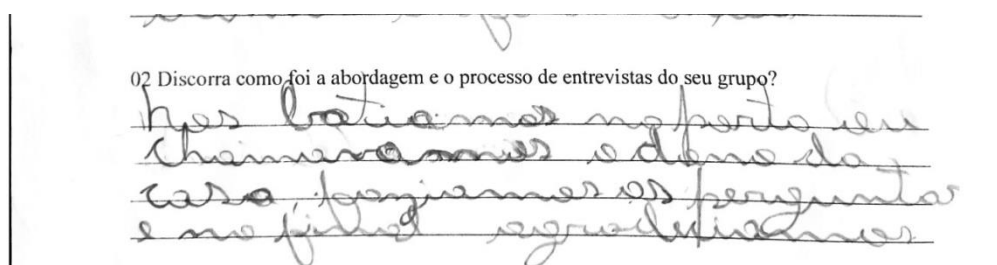 02 Discorra como foi a abordagem e o processo de entrevistas do seu grupo?
nos batiamos na porta ou
chamavamos o dono da
casa, faziamos as perguntas
e no final agradeciamos